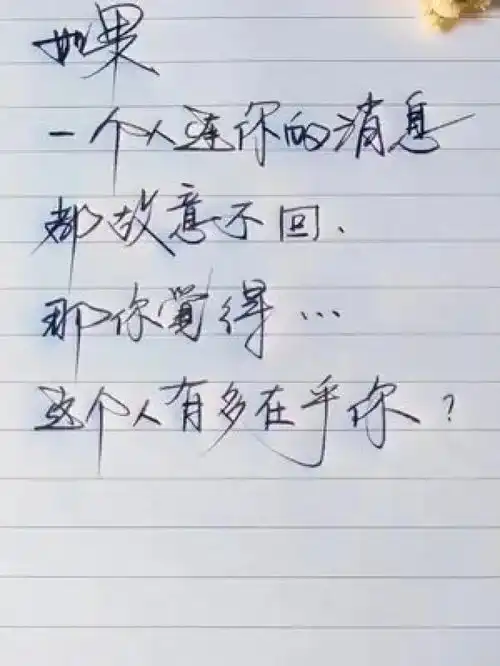 如果
一个人连你的消息
都故意不回、
那你觉得…
这个人有多在乎你？